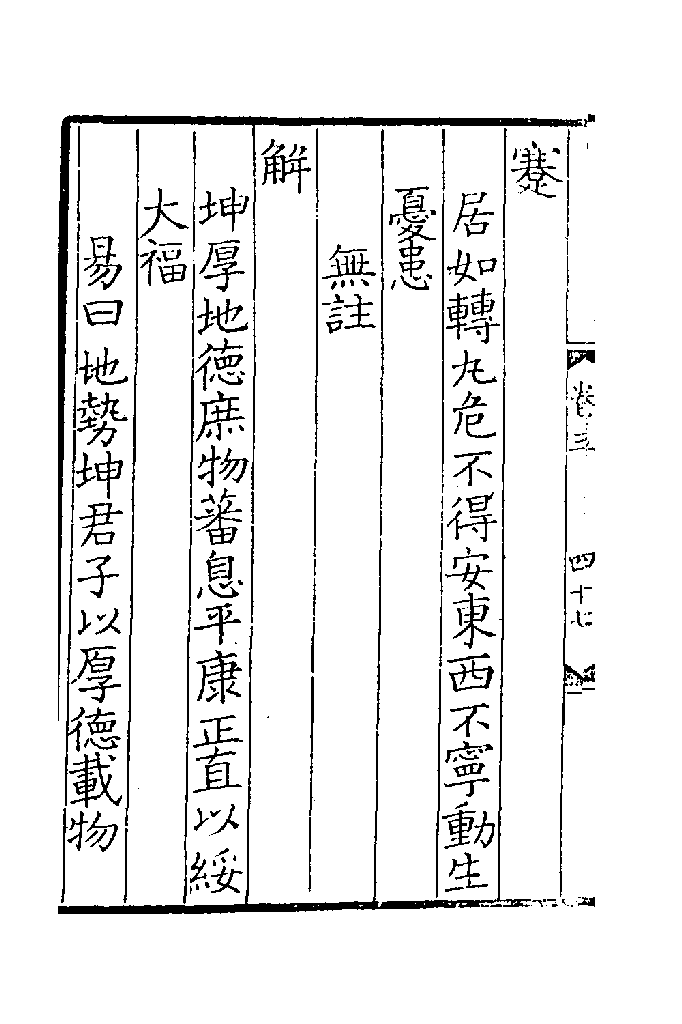 卷三
四十七
蹇
居如轉丸危不得安東西不寧動生
憂患
無註
解
坤厚地德庶物蕃息平康正直以綏
大福
易曰地勢坤君子以厚德載物